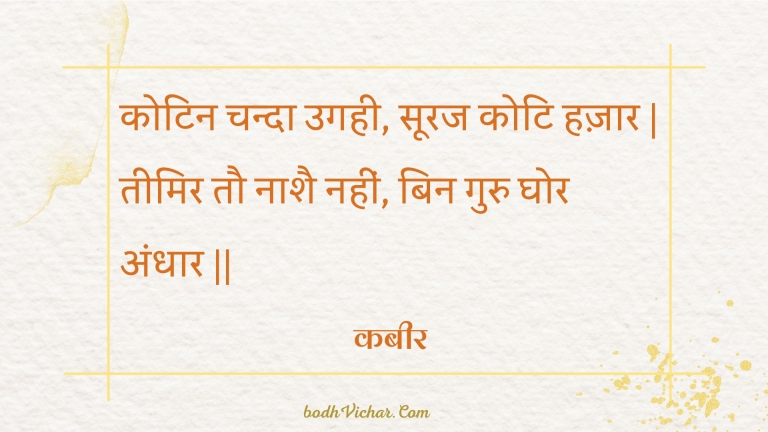 कोटिन चन्दा उगही, सूरज कोटि हज़ार |
तीमिर तौ नाशै नहीं, बिन गुरु घोर
अंधार ||
कबीर
bodhVichar.Com